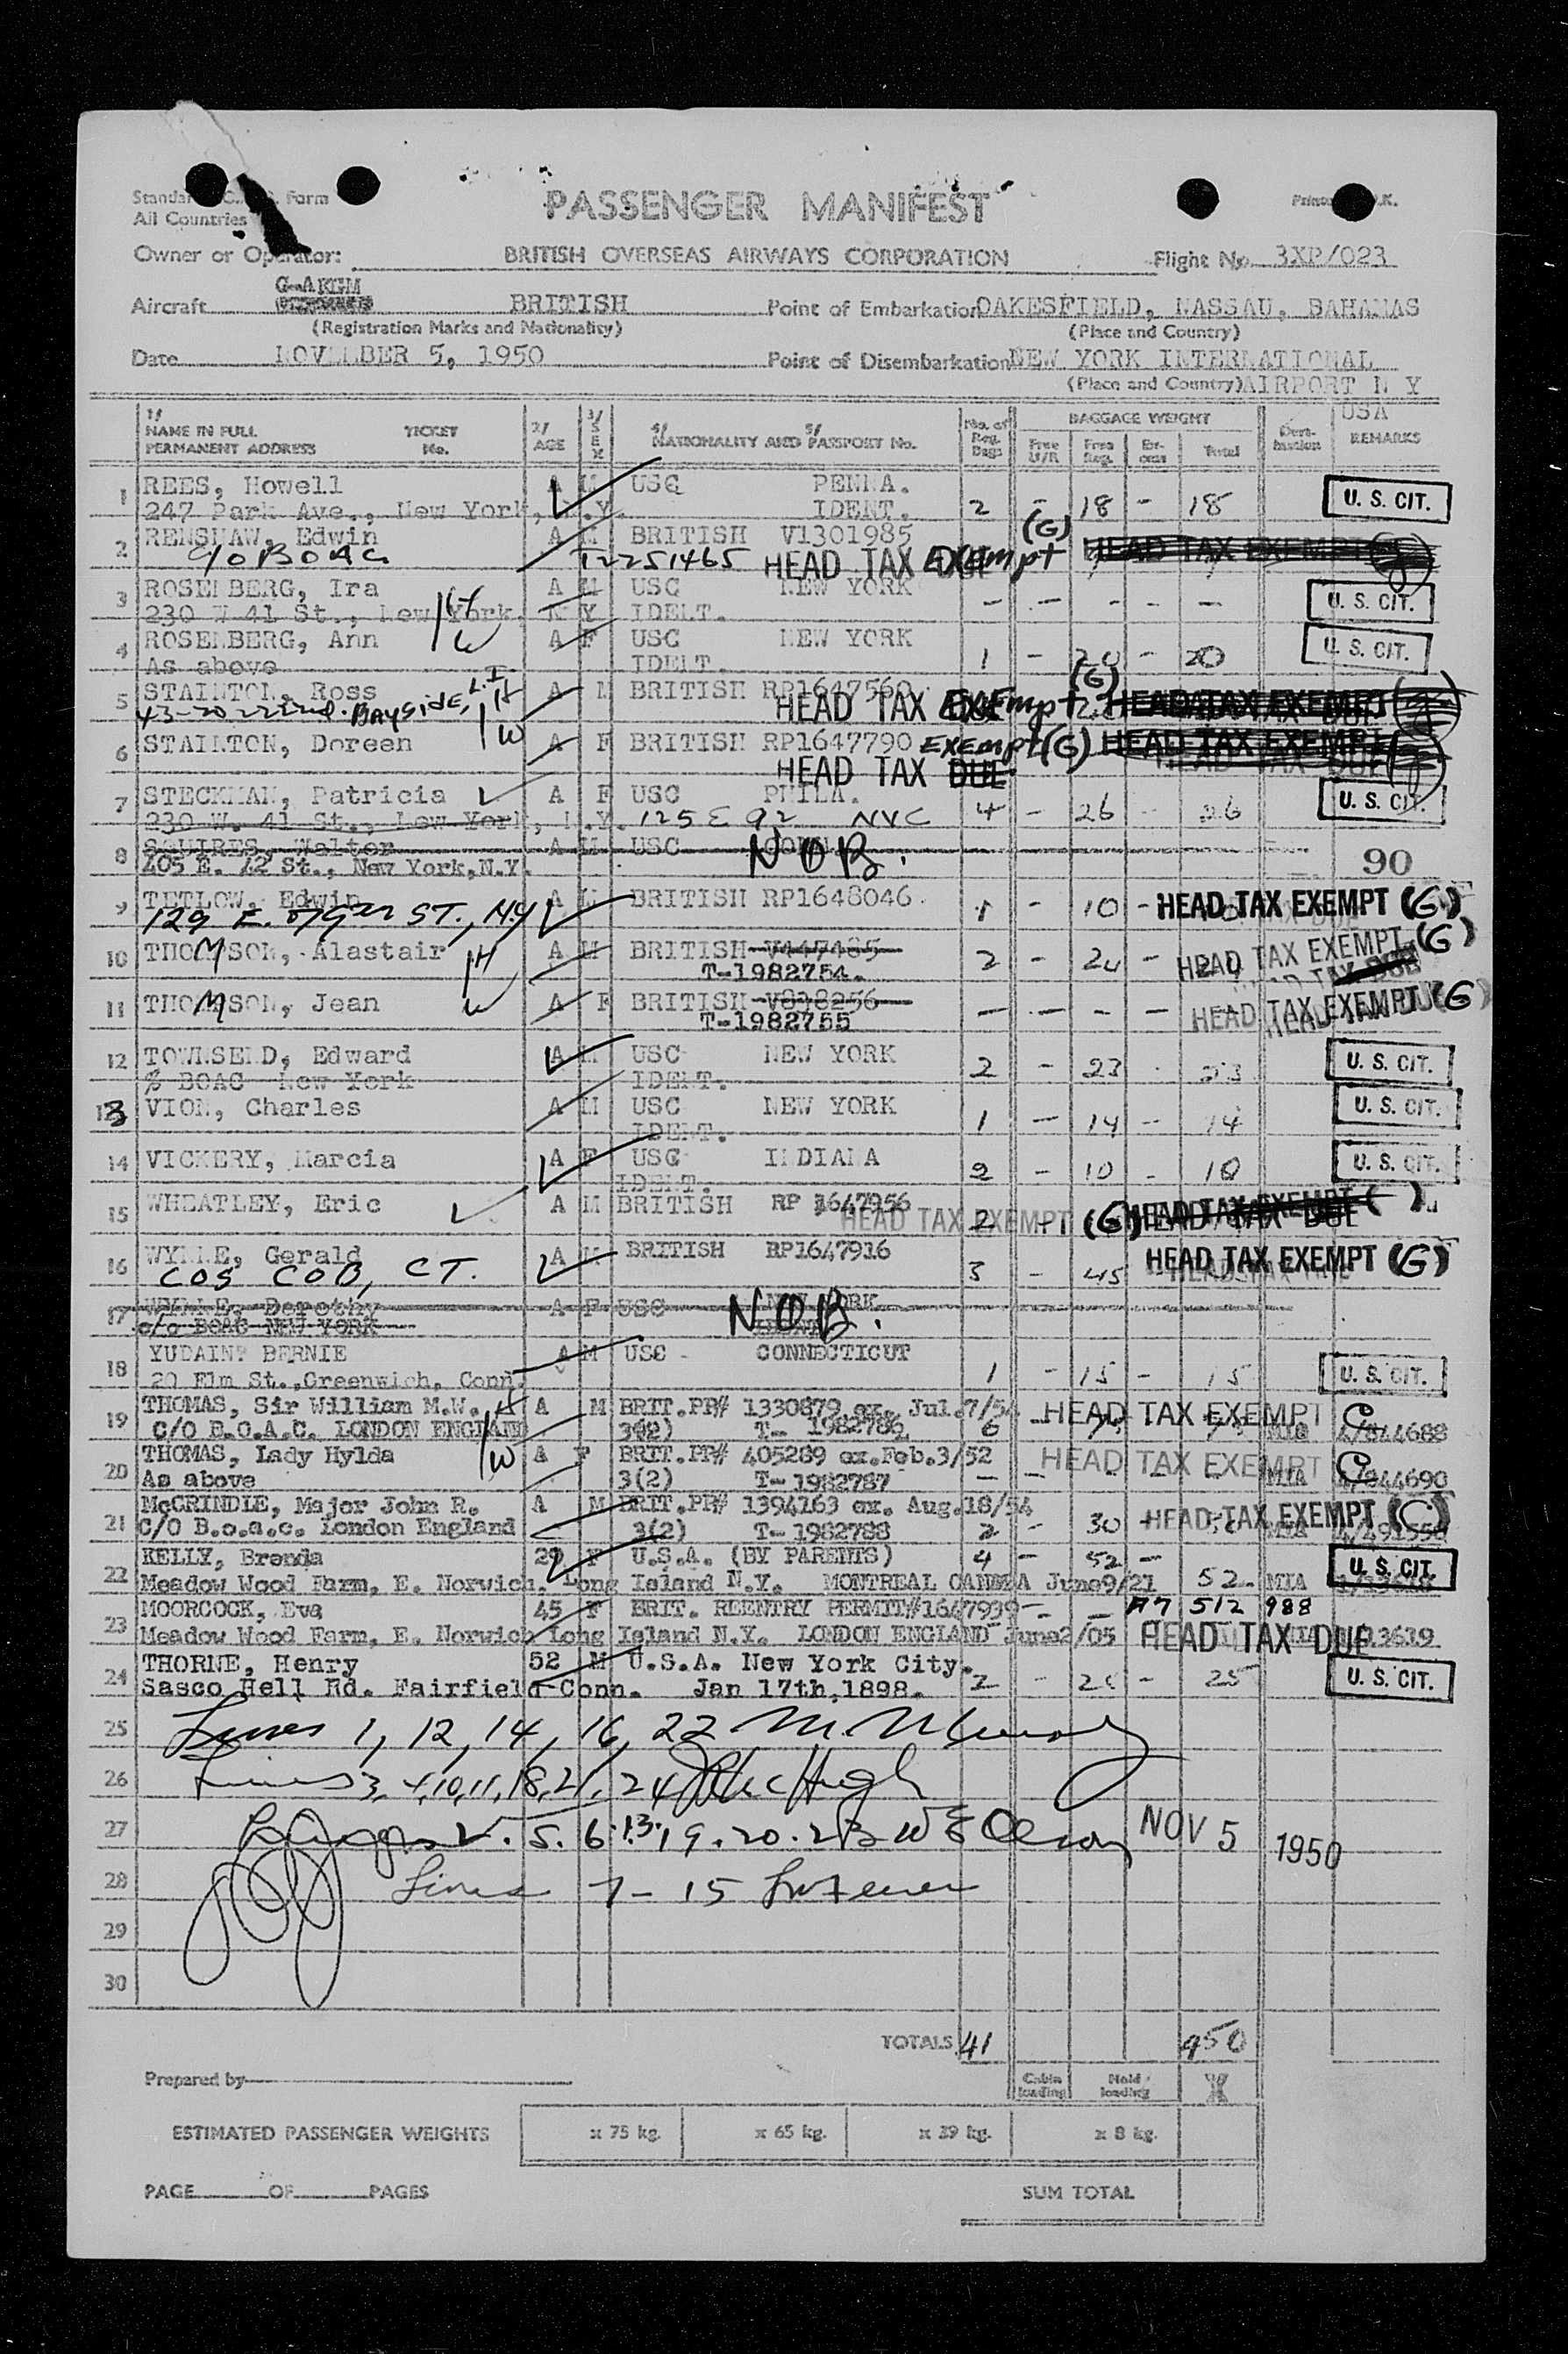 PASSENGER MANIFEST
All Countries
Owner or Operator: BRITISH OVERSEAS AIRWAYS CORPORATION Flight No. 3XP/023
Aircraft BRITISH Point of Embarkation OAKESFIELD, NASSAU, BAHAMAS
(Registration Marks and Nationality) (Place and Country)
Date NOVEMBER 5, 1950 Point of Disembarkation NEW YORK INTERNATIONAL
(Place and Country) AIRPORT N Y
USA
1/ NAME IN FULL PERMANENT ADDRESS TICKET No. 2/ AGE 3/ SEX 4/ 5/ NATIONALITY AND PASSPORT No. No. of Reg. Bags BAGGAGE WEIGHT Free U/R Free Reg. Total REMARKS
1 REES, Howell A M USC PENNA. 2 - 18 - 18 U. S. CIT.
247 Park Ave., New York, N.Y. IDENT.
2 RENSHAW, Edwin A M BRITISH V1301985 (G)
c/o BOAC T-2251465 HEAD TAX Exempt HEAD TAX EXEMPT
3 ROSENBERG, Ira A M USC NEW YORK - - - - - U. S. CIT.
230 W 41 St., New York. N Y IDENT. H
4 ROSENBERG, Ann W A F USC NEW YORK 1 - 20 - 20 U. S. CIT.
As above IDENT.
5 STAINTON, Ross A M BRITISH RP1647560 (G)
Bayside, L.I. H HEAD TAX Exempt HEAD TAX EXEMPT
6 STAINTON, Doreen W A F BRITISH RP1647790 Exempt (G) HEAD TAX EXEMPT
HEAD TAX DUE
7 STECKMAN, Patricia A F USC PHILA. 4 - 26 - 26 U. S. CIT.
230 W. 41 St., New York, N.Y. 125 E 92 NYC
8 SQUIRES, Walter A M USC CONN. N O B.
405 E. 72 St., New York, N.Y. 90
9 TETLOW, Edwin A M BRITISH RP1648046. 1 - 10 - HEAD TAX EXEMPT (G)
129 E. 79th ST., N.Y
10 THOMSON, Alastair H A M BRITISH V447485 2 - 24 - HEAD TAX EXEMPT (G)
T-1982754.
11 THOMSON, Jean W A F BRITISH V898256 - - - - HEAD TAX EXEMPT (G)
T-1982755
12 TOWNSEND, Edward A M USC NEW YORK 2 - 23 - 23 U. S. CIT.
% BOAC New York IDENT.
13 VION, Charles A M USC NEW YORK 1 - 14 - 14 U. S. CIT.
IDENT.
14 VICKERY, Marcia A F USC INDIANA 2 - 10 - 10 U. S. CIT.
IDENT.
15 WHEATLEY, Eric A M BRITISH RP 1647956 2 - HEAD TAX EXEMPT (G) HEAD TAX EXEMPT ( )
16 WYLLE, Gerald A M BRITISH RP1647916 3 - 45 - HEAD TAX EXEMPT (G)
COS COB, CT.
17 WYLLE, Dorothy A F USC NEW YORK N O B.
c/o BOAC NEW YORK IDENT.
18 YUDAIN, BERNIE A M USC - CONNECTICUT 1 - 15 - 15 U. S. CIT.
20 Elm St., Greenwich, Conn.
19 THOMAS, Sir William M.W. H A M BRIT.PR# 1330879 ex. Jul.7/54 HEAD TAX EXEMPT C
C/O B.O.A.C. LONDON ENGLAND 3(2) T- 1982786 6 MIA 4/844688
20 THOMAS, Lady Hylda W A F BRIT.PR# 405289 ex.Feb.3/52 HEAD TAX EXEMPT C
As above 3(2) T-1982787 - - - - MIA 4/844690
21 McCRINDLE, Major John R. A M BRIT.PR# 1394163 ex. Aug.18/54 HEAD TAX EXEMPT (C)
C/O B.o.a.c. London England 3(2) T-1982788 2 - 30 - MIA
22 KELLY, Brenda 29 F U.S.A. (BY PARENTS) 4 - 52 - U. S. CIT.
Meadow Wood Farm, E. Norwich, Long Island N.Y. MONTREAL CANADA June9/21 52 - MIA
23 MOORCOCK, Eva 45 F BRIT. REENTRY PERMIT#1647939 - - A7 512 988
Meadow Wood Farm, E. Norwich Long Island N.Y. LONDON ENGLAND June2/05 HEAD TAX DUE
24 THORNE, Henry 52 M U.S.A. New York City. 2 - 25 - 25 U. S. CIT.
Sasco Hell Rd. Fairfield Conn. Jan 17th,1898.
25 Lines 1, 12, 14, 16, 22
26 Lines 3, 4, 10, 11, 18, 21, 24
27 5. 6. 13. 19. 20. 23 NOV 5 1950
28 Lines 7 - 15
29
30
TOTALS 41 950
Prepared by Cabin loading Hold loading
ESTIMATED PASSENGER WEIGHTS x 75 kg. x 65 kg. x 39 kg. x 8 kg.
PAGE OF PAGES SUM TOTAL